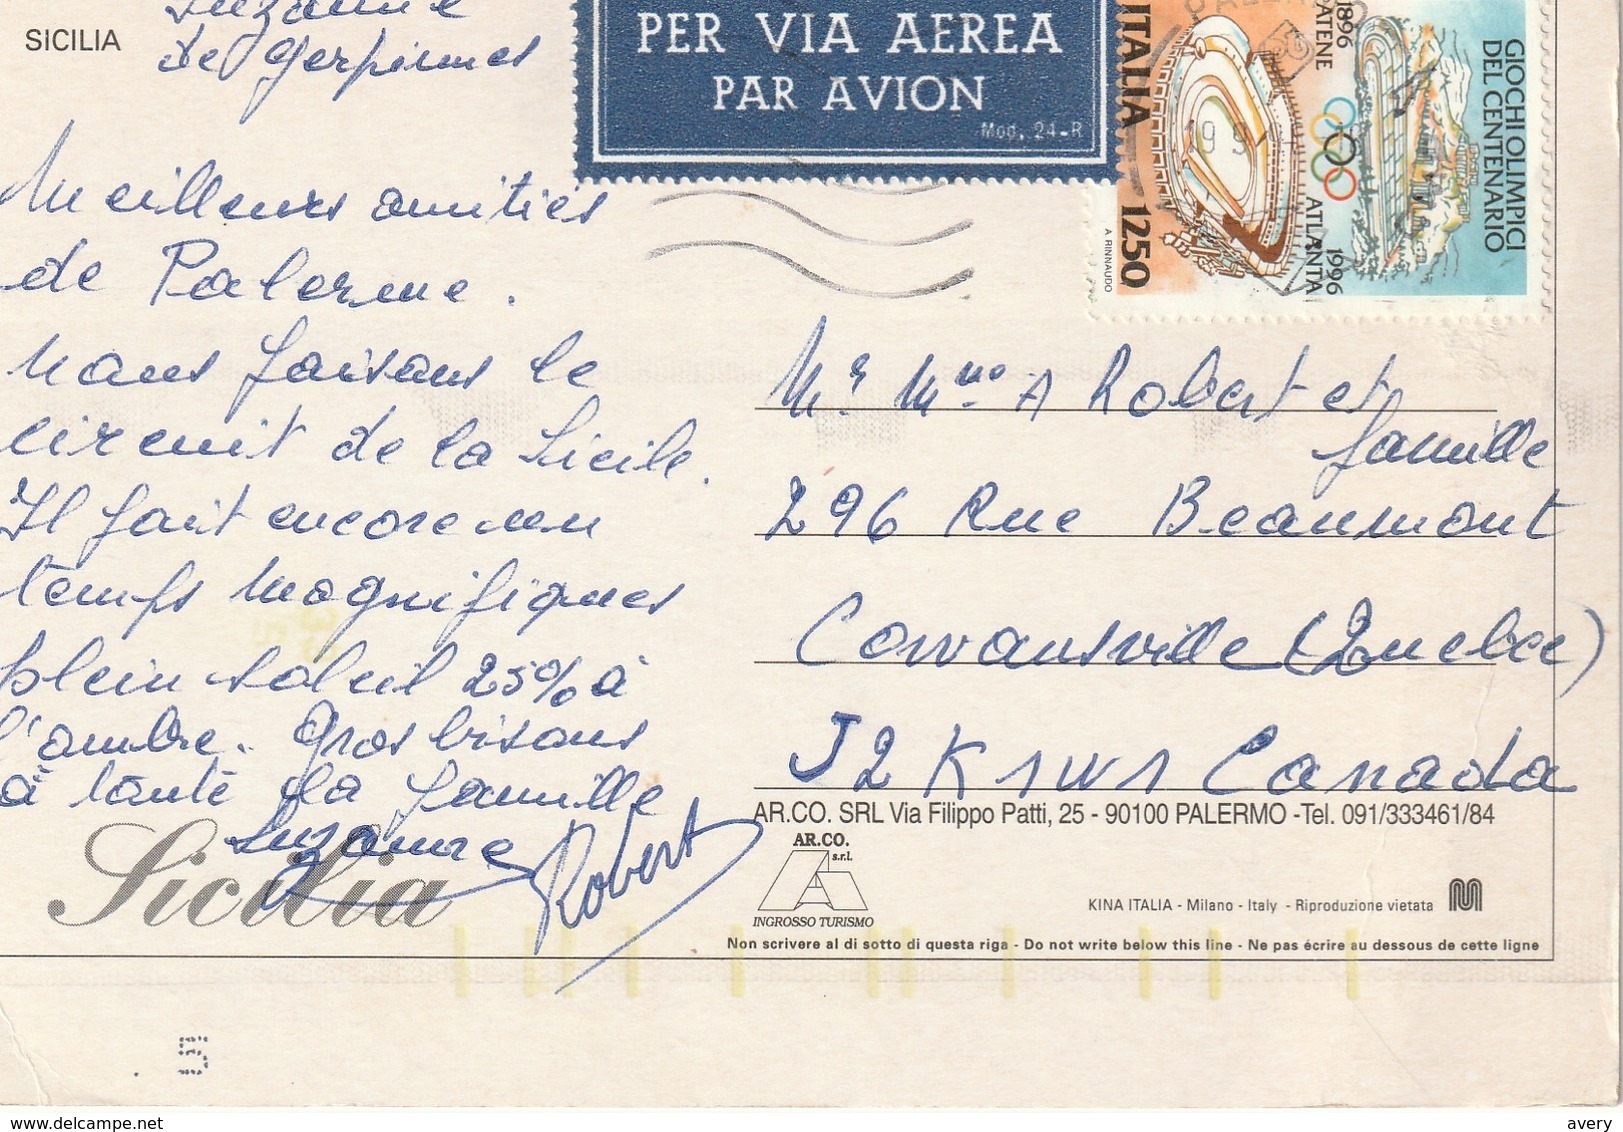 Suzanne
SICILIA
de Gerpinnes
Meilleurs amitiés
de Palerme.
Nous faisons le
circuit de la Sicile.
Il fait encore un
temps magnifiques
plein soleil 25% à
l'ombre. Gros bisous
à toute la famille
Suzanne
Robert
Sicilia
PER VIA AEREA
PAR AVION
Mod. 24-R
ITALIA 1250
A. RINNAUDO
1896
ATENE
ATLANTA
1996
GIOCHI OLIMPICI
DEL CENTENARIO
Mr Mme A Robert et
famille
296 Rue Beaumont
Cowansville (Quebec)
J2K1W1 Canada
AR.CO. SRL Via Filippo Patti, 25 - 90100 PALERMO -Tel. 091/333461/84
AR.CO.
s.r.l.
INGROSSO TURISMO
KINA ITALIA - Milano - Italy - Riproduzione vietata
Non scrivere al di sotto di questa riga - Do not write below this line - Ne pas écrire au dessous de cette ligne
www.delcampe.net
avery